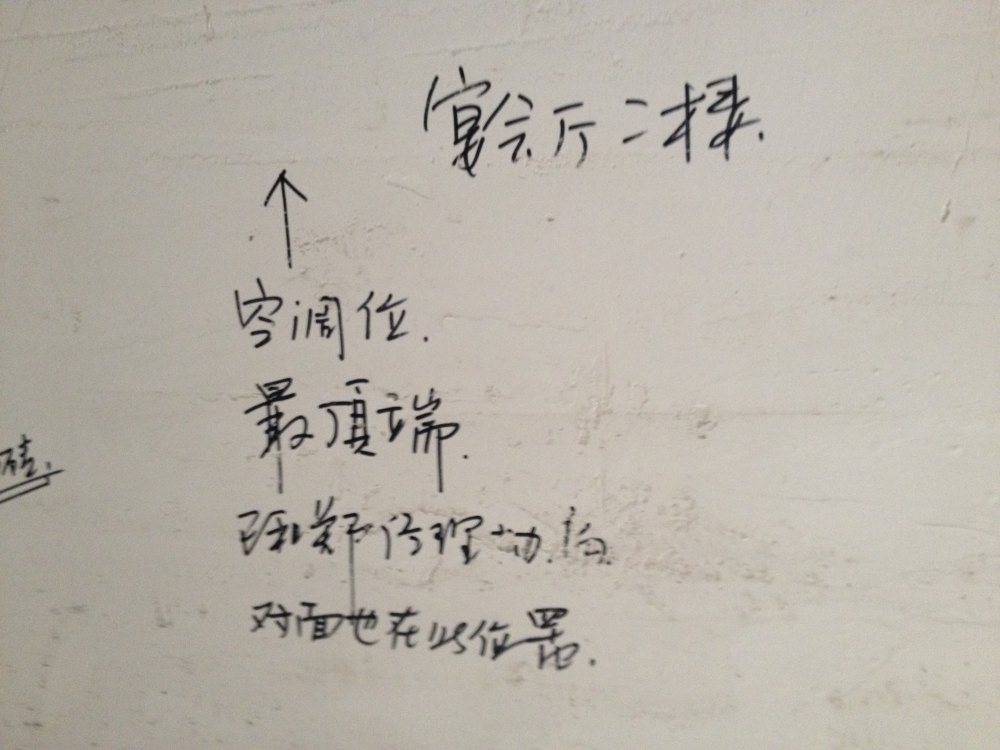 宴会厅二楼.
空调位.
最顶端.
和郑经理协商.
对面也在此位置.
砖.